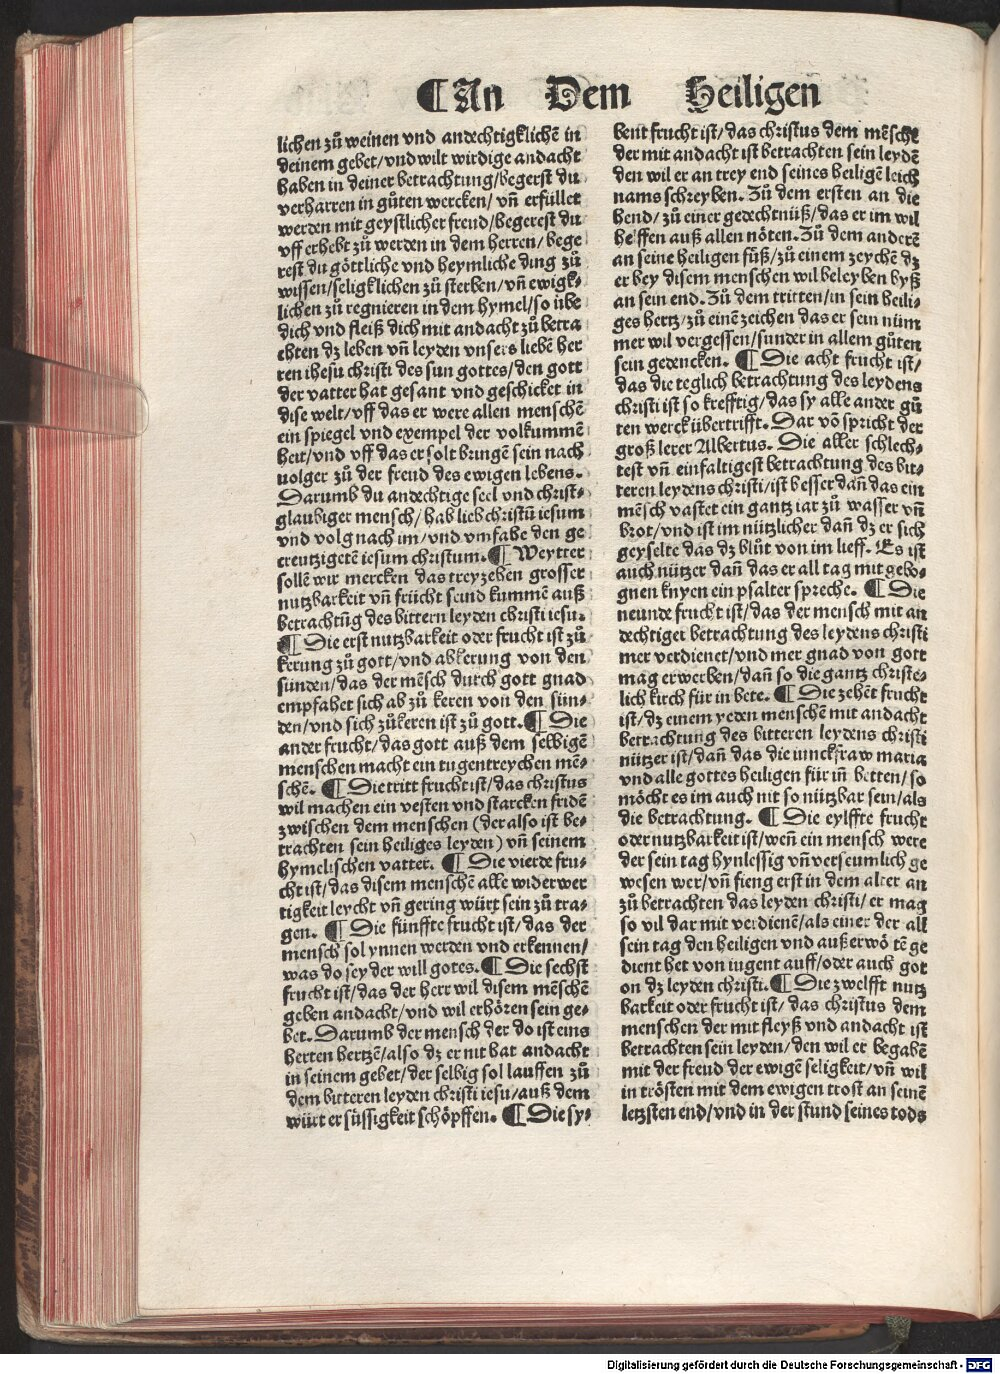 ¶ An Dem Heiligen
lichen zů weinen vnd andechtigklichē in
deinem gebet/vnd wilt wirdige andacht
haben in deiner betrachtung/begerst du
verharren in gůten wercken/ vñ erfüllet
werden mit geystlicher freud/begerest du
vff erhebt zů werden in dem herren/ bege
rest du göttliche vnd heymliche ding zů
wissen/seligklichen zů sterben/vñ ewigk-
lichen zů regnieren in dem hymel/so übe
dich vnd fleiß dich mit andacht zů betra
chten dz leben vñ leyden vnsers liebē her
ren ihesu christi des sun gottes/den gott
der vatter hat gesant vnd geschicket in
dise welt/vff das er were allen menschē
ein spiegel vnd exempel der volkummē
heit/vnd vff das er solt bringē sein nach
uolger zů der freud des ewigen lebens.
Darumb du andechtige seel vnd christ-
glaubiger mensch/ hab lieb christū iesum
vnd volg nach im/vnd vmfahe den ge
creutzigetē iesum christum. ¶ Weytter
sollē wir mercken das treyzehen grosser
nutzbarkeit vñ frücht seind kummē auß
betrachtūg des bittern leyden christi iesu.
¶ Die erst nutzbarkeit oder frucht ist zů
kerung zů gott/vnd abkerung von den
sünden/das der mēsch durch gott gnad
empfahet sich ab zů keren von den sün-
den/vnd sich zůkeren ist zů gott. ¶ Die
ander frucht/das gott auß dem selbigē
menschen macht ein tugentreychen mē-
schē. ¶ Die tritt frucht ist/das christus
wil machen ein vesten vnd starcken fridē
zwischen dem menschen (der also ist be-
trachten sein heiliges leyden) vñ seinem
hymelischen vatter. ¶ Die vierde fru-
cht ist/das disem menschē alle widerwer
tigkeit leycht vñ gering würt sein zů tra-
gen. ¶ Die fünffte frucht ist/das der
mensch sol ynnen werden vnd erkennen/
was do sey der will gotes. ¶ Die sechst
frucht ist/das der herr wil disem mēschē
geben andacht/vnd wil erhören sein ge-
bet. Darumb der mensch der do ist eins
herten hertzē/also dz er nit hat andacht
in seinem gebet/der selbig sol lauffen zů
dem bitteren leyden christi iesu/auß dem
würt er süssigkeit schöpffen. ¶ Die sy-
bent frucht ist/das christus dem mēschē
der mit andacht ist betrachten sein leydē
den wil er an trey end seines heiligē leich
nams schreyben. Zů dem ersten an die
hend/zů einer gedechtnüß/das er im wil
helffen auß allen nöten. Zů dem anderē
an seine heiligen füß/zů einem zeychē dz
er bey disem menschen wil beleyben byß
an sein end. Zů dem tritten/in sein heili-
ges hertz/zů einē zeichen das er sein nüm
mer wil vergessen/sunder in allem gůten
sein gedencken. ¶ Die acht frucht ist/
das die teglich betrachtung des leydens
christi ist so krefftig/das sy alle ander gů
ten werck übertrifft. Dar vō spricht der
groß lerer Albertus. Die aller schlech-
test vñ einfaltigest betrachtung des bit-
teren leydens christi/ist besser dañ das ein
mēsch vastet ein gantz iar zů wasser vñ
brot/vnd ist im nützlicher dañ dz er sich
geyselte das dz blůt von im lieff. Es ist
auch nützer dañ das er all tag mit gebo-
gnen knyen ein psalter spreche. ¶ Die
neunde frucht ist/das der mensch mit an
dechtiger betrachtung des leydens christi
mer verdienet/vnd mer gnad von gott
mag erwerben/dañ so die gantz christe-
lich kirch für in bete. ¶ Die zehēt frucht
ist/dz einem yeden menschē mit andacht
betrachtung des bitteren leydens christi
nützer ist/dañ das die iunckfraw maria
vnd alle gottes heiligen für iñ betten/so
möcht es im auch nit so nützbar sein/als
die betrachtung. ¶ Die eylffte frucht
oder nutzbarkeit ist/weñ ein mensch were
der sein tag hynlessig vñ verseumlich ge
wesen wer/vñ fieng erst in dem alter an
zů betrachten das leyden christi/er mag
so vil dar mit verdienē/als einer der all
sein tag den heiligen vnd außerwōtē ge
dient het von iugent auff/oder auch got
on dz leyden christi. ¶ Die zwelfft nutz
barkeit oder frucht ist/ das christus dem
menschen der mit fleyß vnd andacht ist
betrachten sein leyden/den wil er begabē
mit der freud der ewigē seligkeit/vñ wil
in trösten mit dem ewigen trost an seinē
letzsten end/vnd in der stund seines tods
Digitalisierung gefördert durch die Deutsche Forschungsgemeinschaft - DFG